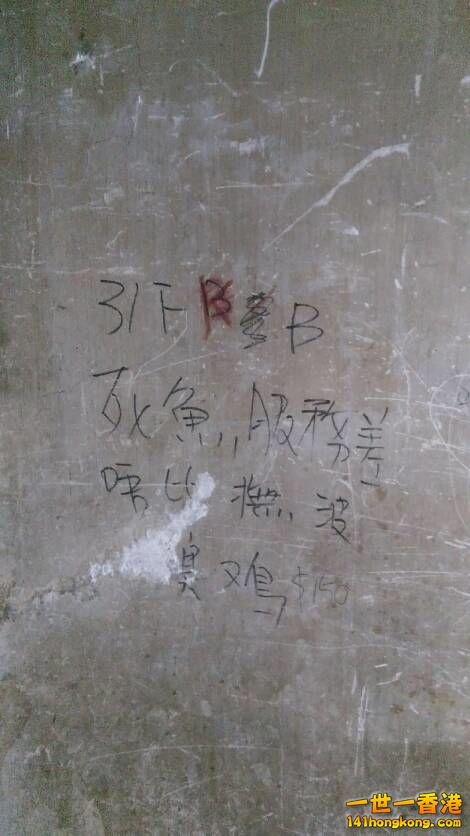 31F B B
死魚,服務差
唔比摸波
臭又鸡 $150
一世一香港
141hongkong.com